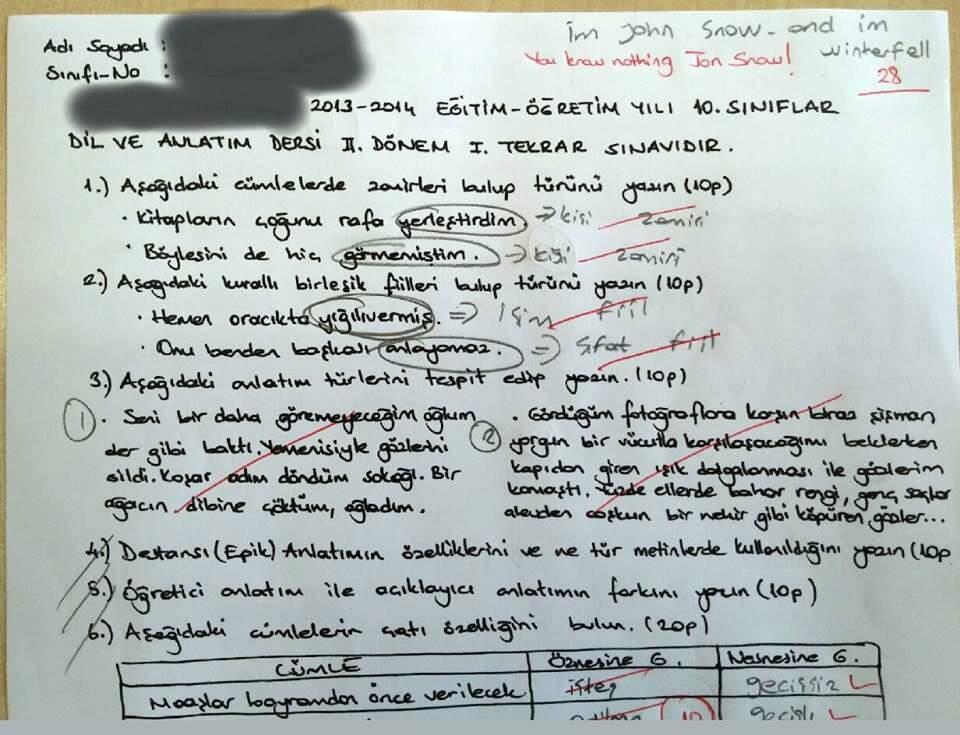 Adı Soyadı :
im john Snow. and im
Sınıfı-No :
You know nothing Jon Snow!
winterfell
28
2013-2014 EĞİTİM-ÖĞRETİM YILI 10. SINIFLAR
DİL VE ANLATIM DERSİ II. DÖNEM I. TEKRAR SINAVIDIR.
1.) Aşağıdaki cümlelerde zamirleri bulup türünü yazın (10p)
· Kitapların çoğunu rafa yerleştirdim. → kisi zamiri
· Böylesini de hiç görmemiştim. → kişi zamiri
2.) Aşağıdaki kurallı birleşik fiilleri bulup türünü yazın (10p)
· Hemen oracıkta yığılıvermiş. ⇒ isim fiil
· Onu benden başkası anlayamaz. ⇒ sıfat fiil
3.) Aşağıdaki anlatım türlerini tespit edip yazın. (10p)
1 . Seni bir daha göremeyeceğim oğlum
der gibi baktı. Yemenisiyle gözlerini
sildi. Koşar adım döndüm sokağı. Bir
ağacın dibine çöktüm, ağladım.
2 . Gördüğüm fotoğraflara karşın biraz şişman
yorgun bir vücutla karşılaşacağımı beklerken
kapıdan giren ışık dalgalanması ile gözlerim
kamaştı. Yüzde ellerde bahar rengi, genç saçlar
alevden coşkun bir nehir gibi köpüren gözler...
4.) Destansı (Epik) Anlatımın özelliklerini ve ne tür metinlerde kullanıldığını yazın (10p
5.) Öğretici anlatım ile açıklayıcı anlatımın farkını yazın (10p)
6.) Aşağıdaki cümlelerin çatı özelliğini bulun. (20p)
CÜMLE Öznesine G. Nesnesine G.
Maaşlar bayramdan önce verilecek işteş geçişsiz
10 geçişli